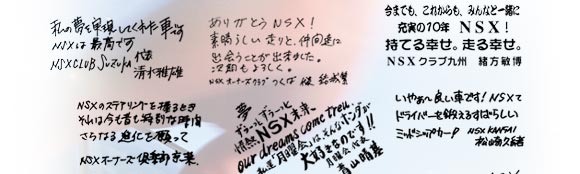 私の夢を実現してくれた車
NSXは最高です
NSX CLUB Suzuka 代表
清水雅雄
ありがとうNSX!
素晴らしい走りと、仲間達に
出会うことが出来ました。
次期もよろしく。
NSXオーナーズクラブつくば
今までも、これからも、みんなと一緒に
充実の10年 NSX!
持てる幸せ。走る幸せ。
NSXクラブ九州 緒方敏博
NSXのステアリングを握るとき
それは今も昔も特別な時間
さらなる進化を願って
NSXオーナーズ倶楽部
夢
ずうーっとずうーっと
情熱NSX未来、
our dreams come true.
私達「月曜会」はそんなホンダが
大好きなのです!!
月曜会 代表
青山晴基
いやぁ〜良い車です!NSXで
ドライバーを鍛えるすばらしい
ミッドシップカー!
NSX KANSAI
松崎久緒